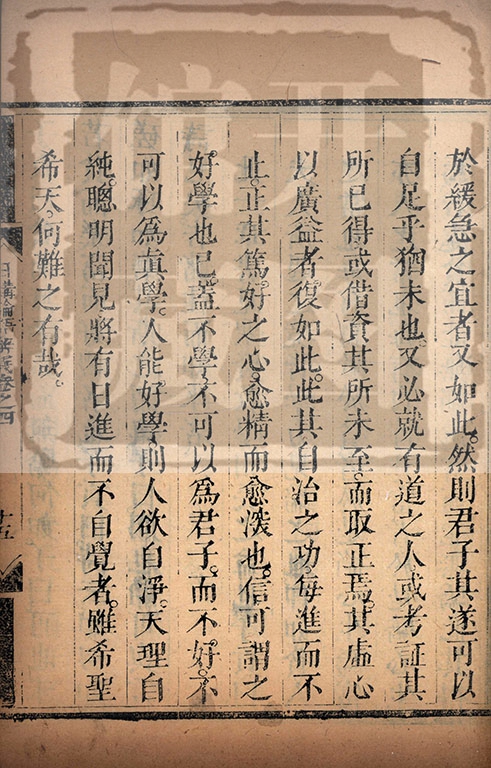 於緩急之宜者又如此。然則君子其遂可以
自足乎猶未也又必就有道之人或考証其
所已得或借資其所未至。而取正焉。其虛心
以廣益者。復如此。此其自治之功。每進而不
止。正其篤。好之心。愈精而愈深也。信可謂之
好學也已。蓋不學。不可以爲君子。而不好。不
可以爲眞學。人能好學則人欲自淨。天理自
純。聰明聞見將有日進而不自覺者。雖希聖
希天。何難之有哉。
日講論語解義卷之四
十五